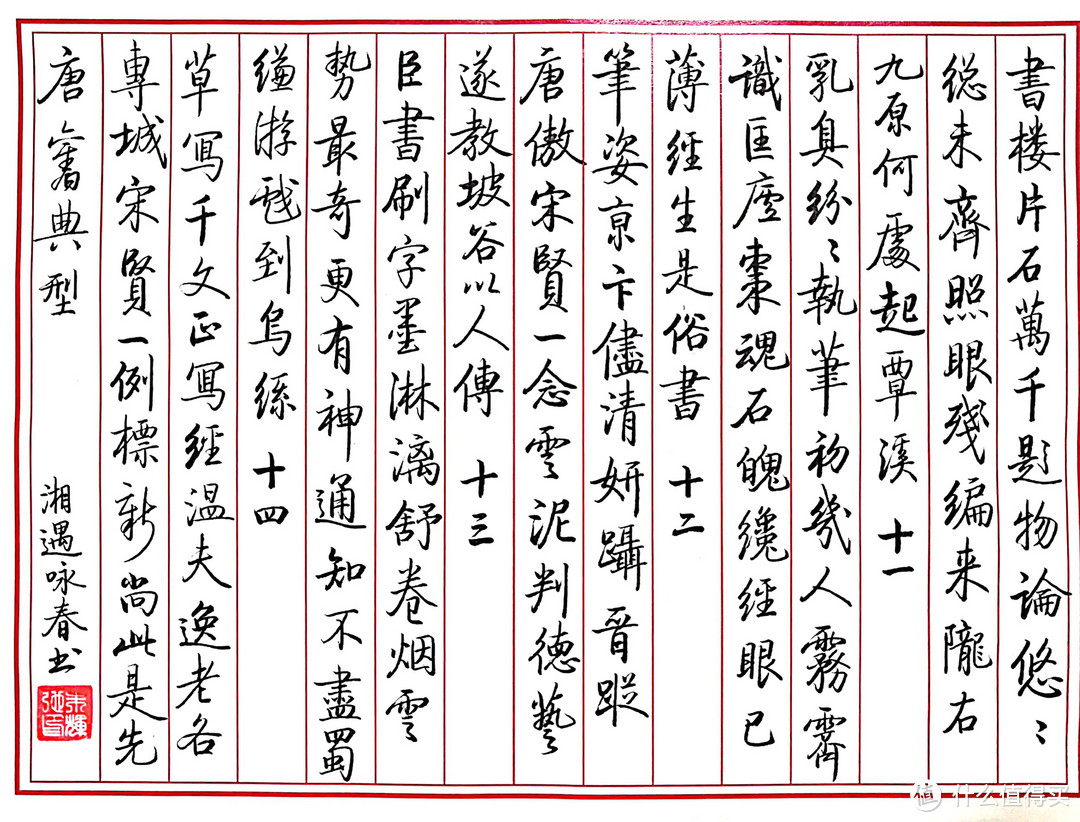 書楼片石萬千題物論悠〻
總未齊照眼殘編来隴右
九原何處起覃溪 十一
乳臭紛〻執筆初幾人霧霽
識匡廬棗魂石魄纔經眼已
薄經生是俗書 十二
筆姿京卞儘清妍躡晉蹤
唐傲宋賢一念雲泥判德藝
遂教坡谷以人傳 十三
臣書刷字墨淋漓舒卷烟雲
勢最奇更有神通知不盡蜀
縑游戲到烏絲 十四
草寫千文正寫經温夫逸老各
專城宋賢一例標新尚此是先
唐舊典型
湘遇咏春书
值 什么值得买